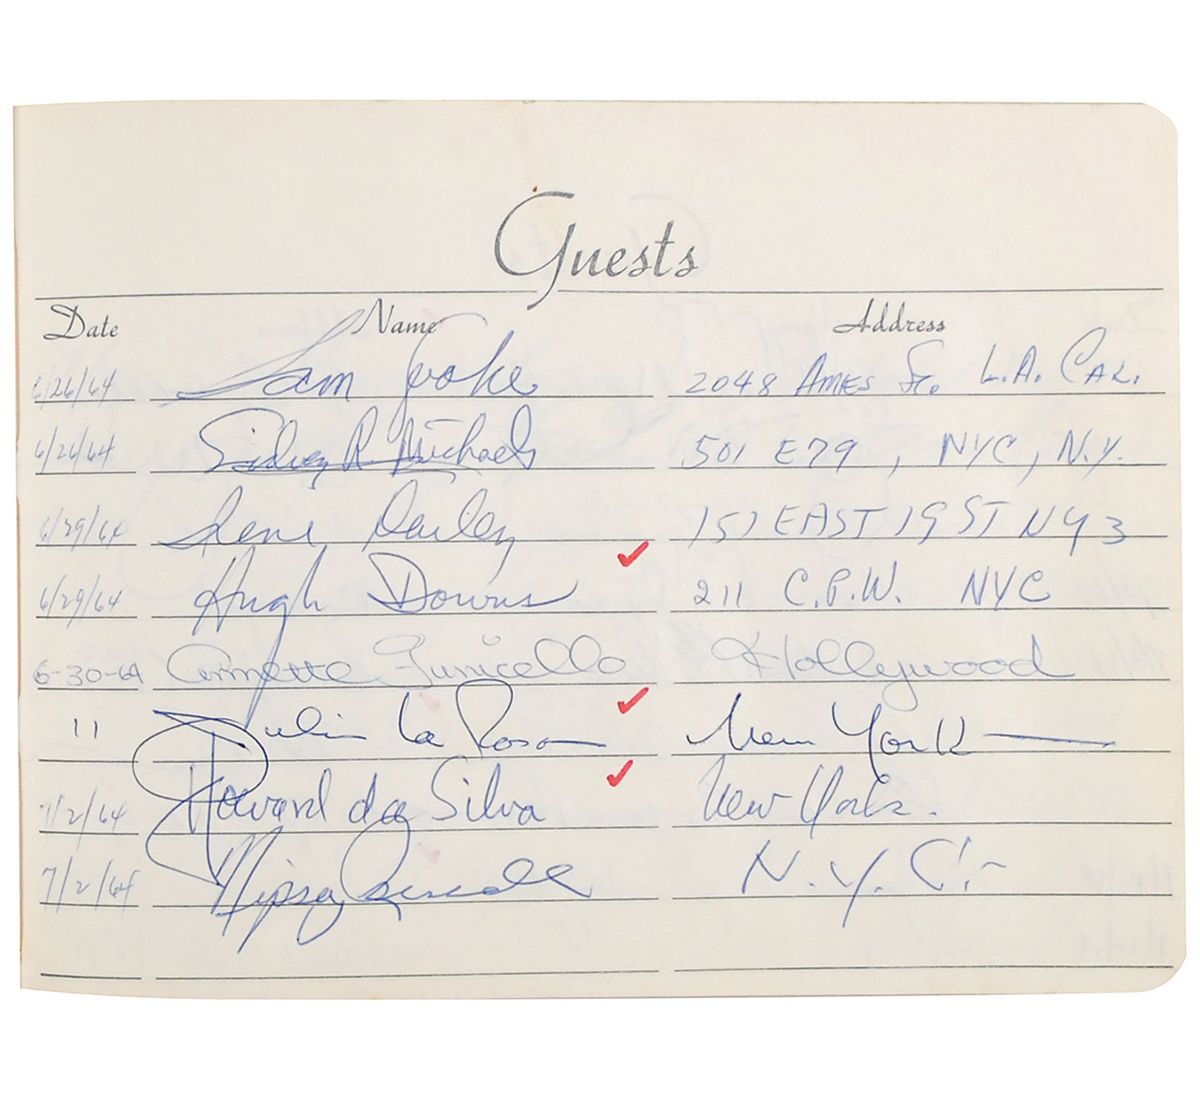 Guests
Date Name Address
6/26/64 Sam Cooke 2048 Ames St. L.A. Cal.
6/26/64 Sidney R Michaels 501 E79, NYC, N.Y.
6/29/64 Irene Dailey 151 EAST 19 ST NY 3
6/29/64 Hugh Downs 211 C.P.W. NYC
6-30-64 Annette Funicello Hollywood
11 Julius La Rosa New York
7/2/64 Howard da Silva New York.
7/2/64 Nipsey Russell N.Y.C.